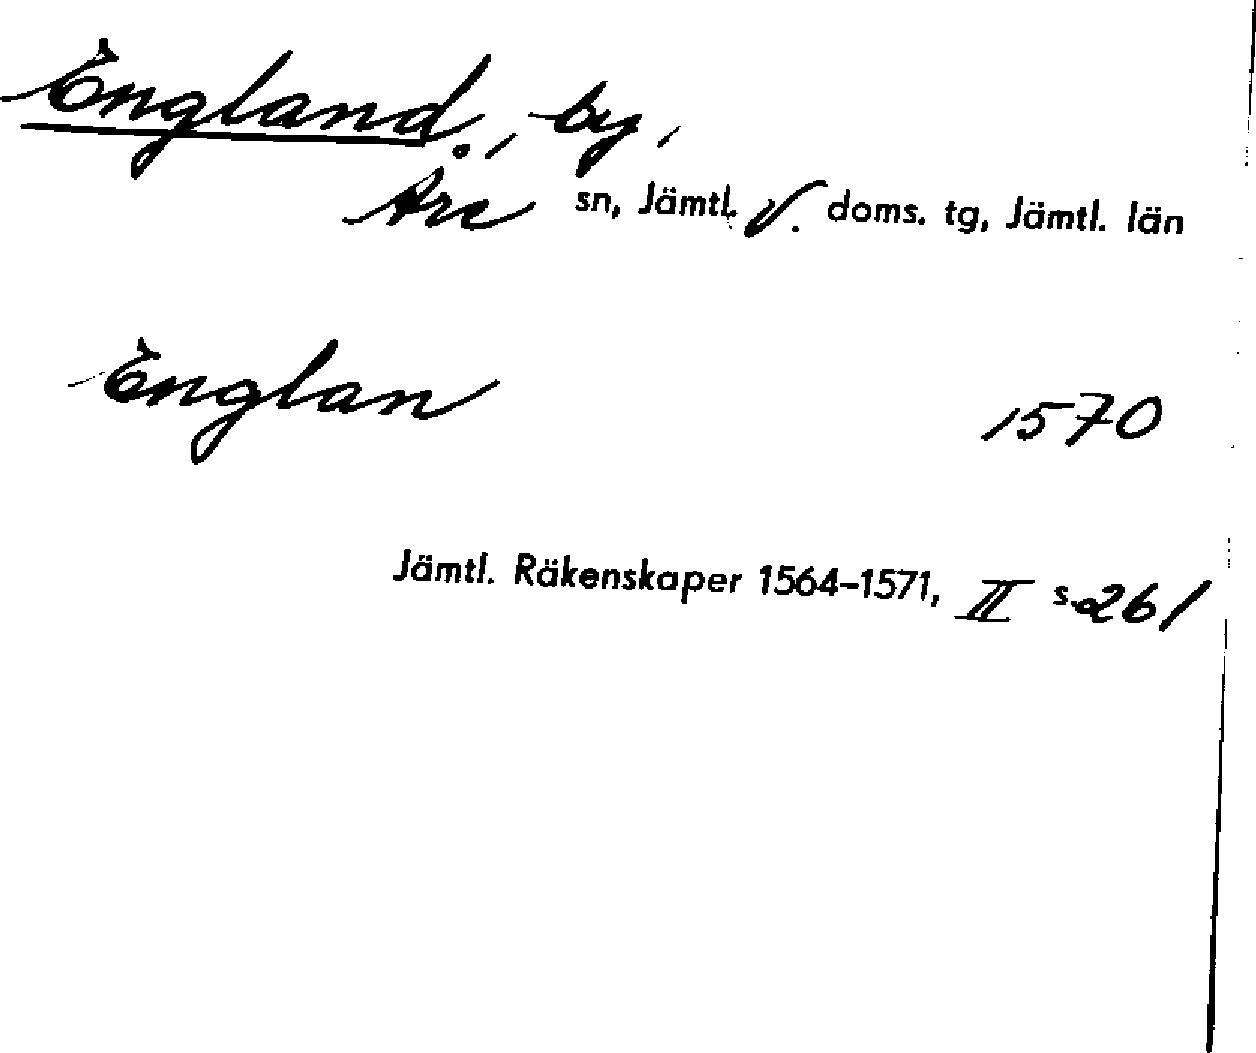 England, by,
Åre sn, Jämtl. V. doms. tg, Jämtl. län
Englan 1570
Jämtl. Räkenskaper 1564-1571, II s. 261